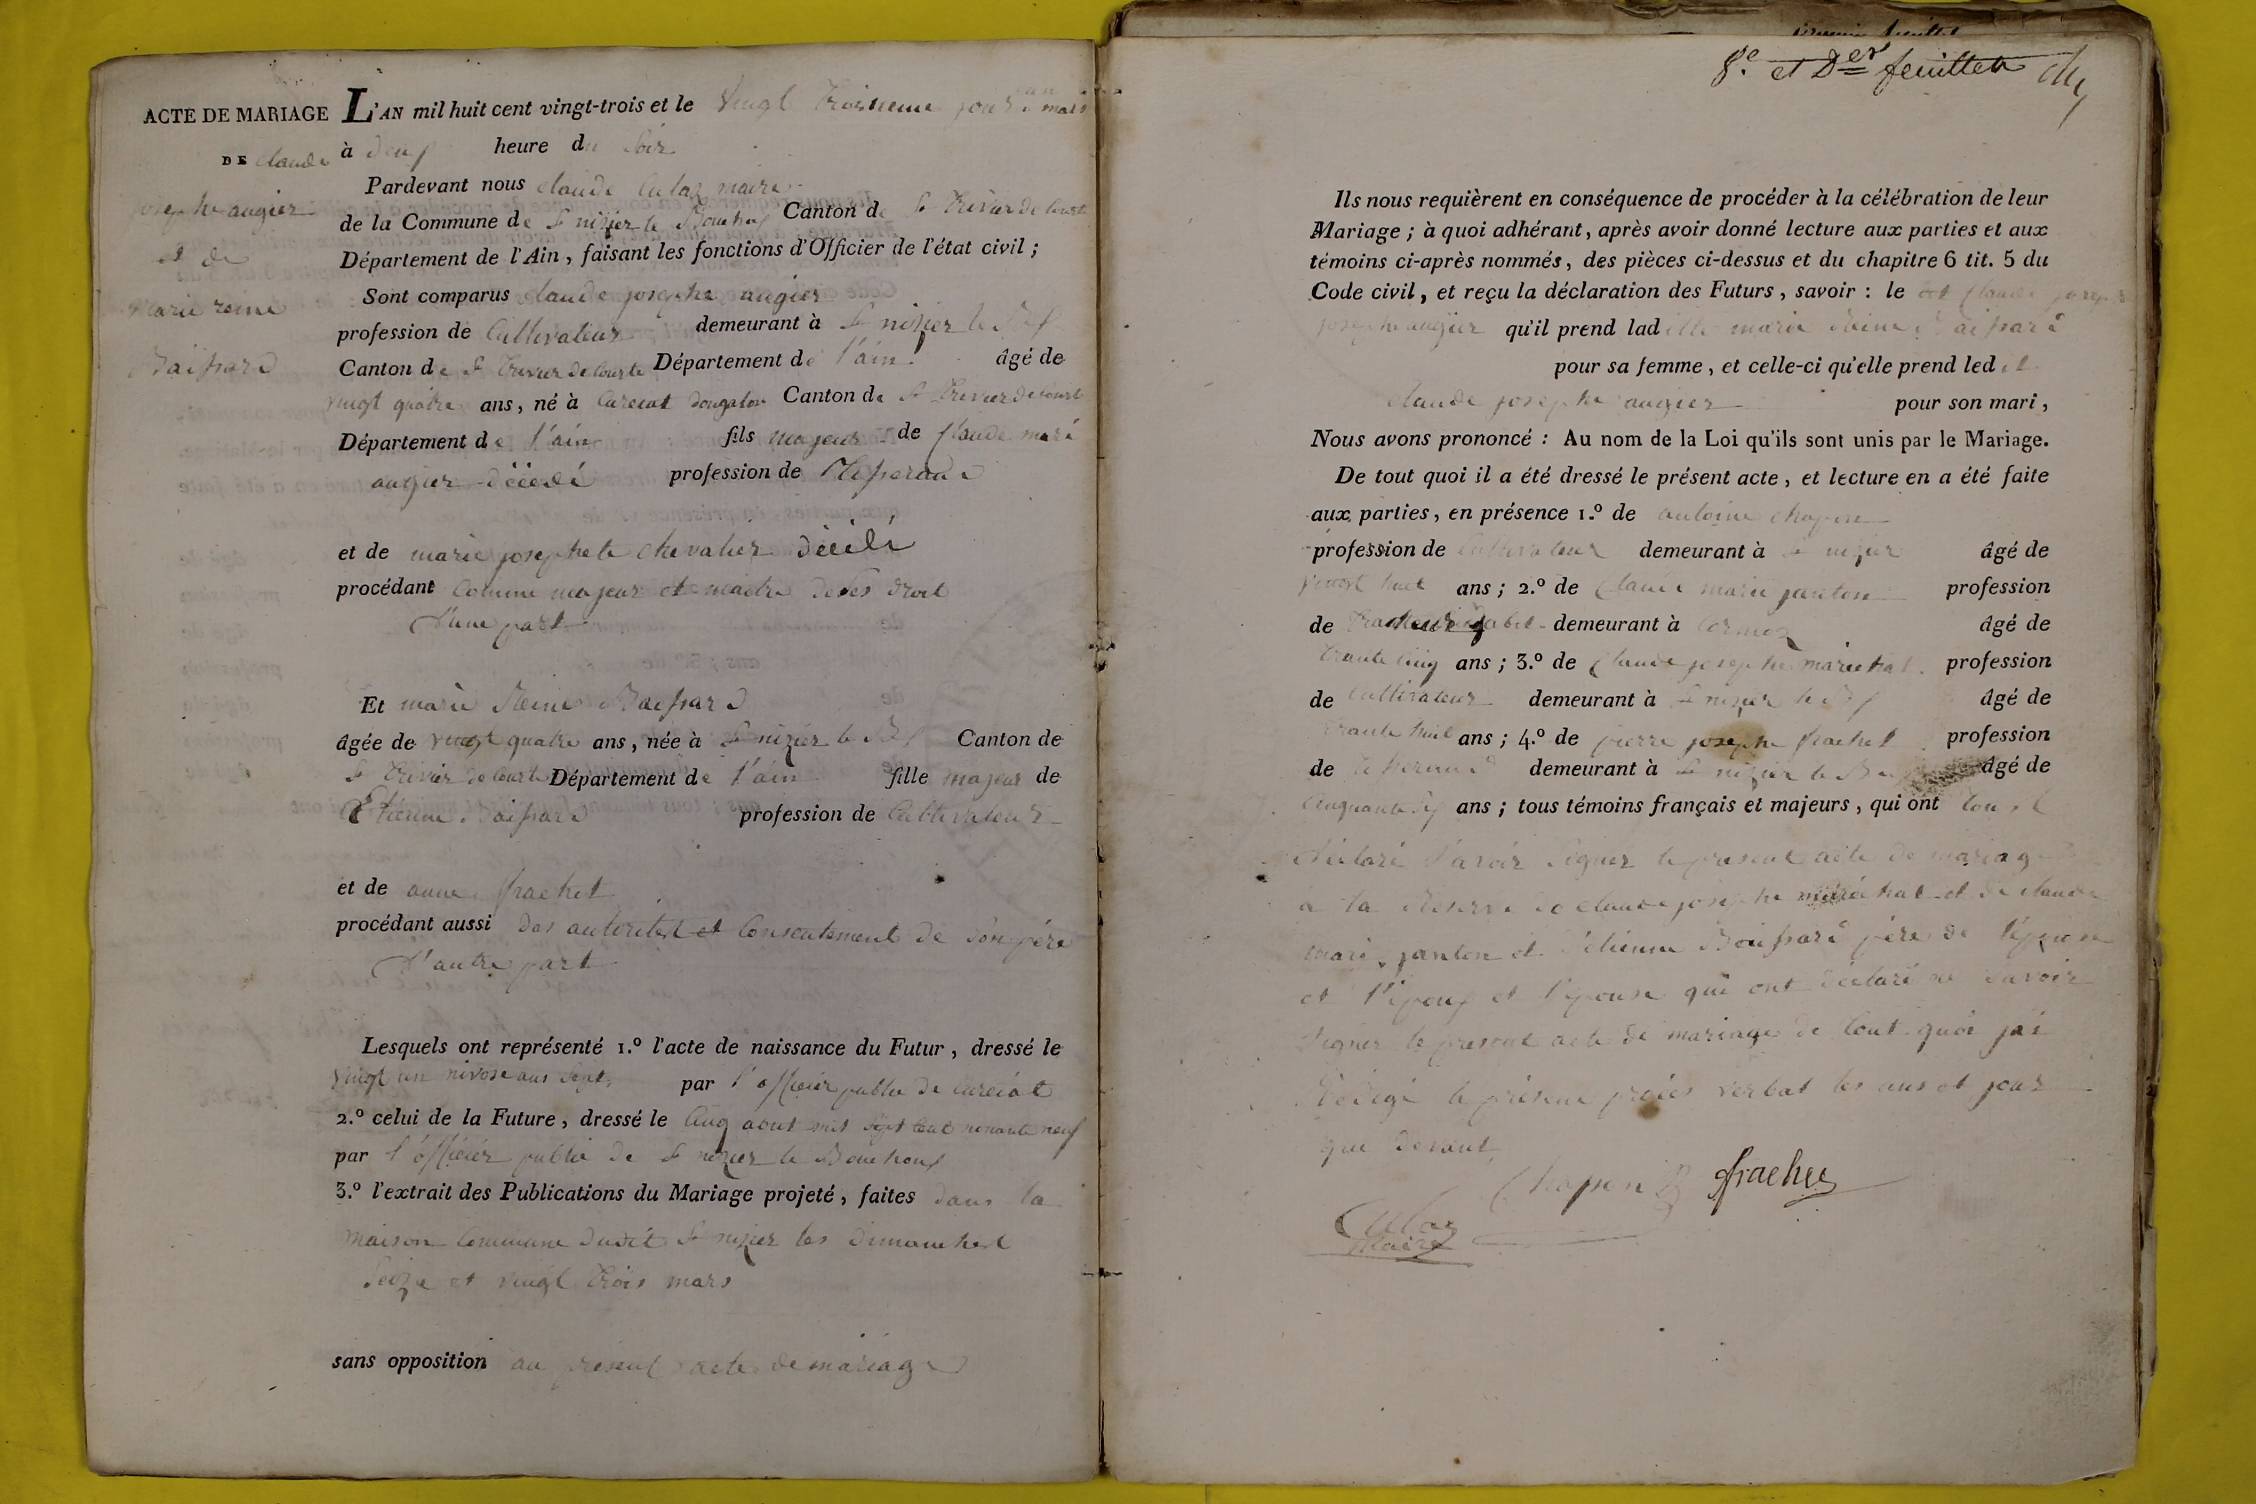 ACTE DE MARIAGE
DE Claude
josephe augier
et de
Marie reine
Baissard
L'AN mil huit cent vingt-trois et le Vingt Troisieme jour mars
à deux heure du Soir
Pardevant nous claude Culaz maire
de la Commune de St nizier le Bouchoux Canton de St Trivier de Courte
Département de l'Ain, faisant les fonctions d'Officier de l'état civil ;
Sont comparus claude josephe augier
profession de Cultivateur demeurant à St nizier le Bx
Canton de St Trivier de Courte Département de l'ain âgé de
vingt quatre ans, né à Curciat dongalon Canton de St Trivier de Courte
Département de l'ain fils majeur de Claude marie
augier décédé profession de Tisserand
et de marie josephete chevalier décédé
procédant comme majeur et maitre de ses droit
d'une part
Et marie Reine Baissard
âgée de vingt quatre ans, née à St nizier le Bx Canton de
St Trivier de Courte Département de l'ain fille majeur de
Etienne Baissard profession de Cultivateur
et de anne frachet
procédant aussi des autoritest et Consentement de son père
d'autre part
Lesquels ont représenté 1.º l'acte de naissance du Futur, dressé le
vingt un nivose ans Sept par l'officier public de curciat
2.º celui de la Future, dressé le Cinq aout mil Sept Cent nonante neuf
par l'officier public de St nizier le Bouchoux
3.º l'extrait des Publications du Mariage projeté, faites dans la
maison Commune dudit St nizier les dimanchest
Seize et vingt trois mars
sans opposition au présent acte de mariage
8.e et Der feuillet
Ils nous requièrent en conséquence de procéder à la célébration de leur
Mariage ; à quoi adhérant, après avoir donné lecture aux parties et aux
témoins ci-après nommés, des pièces ci-dessus et du chapitre 6 tit. 5 du
Code civil, et reçu la déclaration des Futurs, savoir : le dit Claude josephe
josephe augier qu'il prend laditte marie Reine Baissard
pour sa femme, et celle-ci qu'elle prend ledit
claude josephe augier pour son mari,
Nous avons prononcé : Au nom de la Loi qu'ils sont unis par le Mariage.
De tout quoi il a été dressé le présent acte, et lecture en a été faite
aux parties, en présence 1.º de antoine chapon
profession de Cultivateur demeurant à St nizier âgé de
vingt huit ans ; 2.º de Claude marie janton profession
de demeurant à Cormoz âgé de
trante cinq ans ; 3.º de Claude josephe maréchal profession
de Cultivateur demeurant à St nizier le Bx âgé de
trante huit ans ; 4.º de pierre josephe frachet profession
de tisserand demeurant à St nizier le Bx âgé de
cinquante Six ans ; tous témoins français et majeurs, qui ont tous
déclaré Savoir Signer le present acte de mariage
a la Reserve de claude josephe maréchal et de claude
marie janton et d'étienne Baissard père de l'épouse
et l'époux et l'épouse qui ont déclaré ne Savoir
Signer le present acte de mariage de tout quoi jai
Rédigé le présent procès verbal les ans et jour
que devant
Chapon frachet
Culaz
Maire